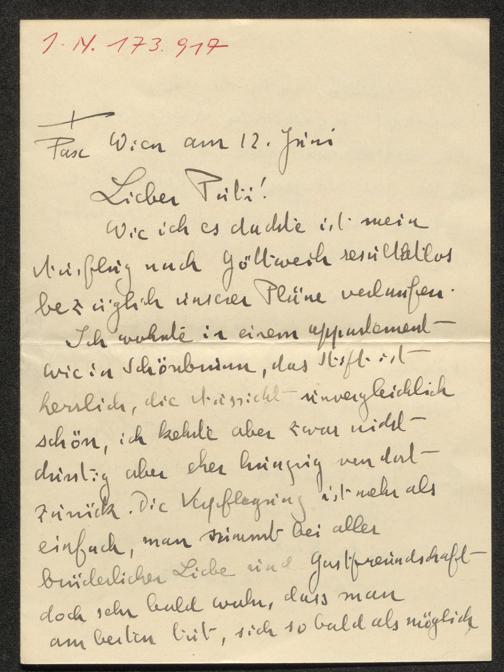 I. N. 173.917
+
Pax Wien am 12. Juni
Lieber Puti!
Wie ich es dachte ist mein
Ausflug nach Göttweih resultatlos
bezüglich unserer Pläne verlaufen.
Ich wohnte in einem appartement
wie in Schönbrunn, das Stift ist
herrlich, die Aussicht unvergleichlich
schön, ich kehrte aber zwar nicht
durstig aber eher hungrig von dort
zurück. Die Verpflegung ist mehr als
einfach, man nimmt bei aller
brüderlicher Liebe und Gastfreundschaft
doch sehr bald wahr, dass man
am besten tut, sich so bald als möglich